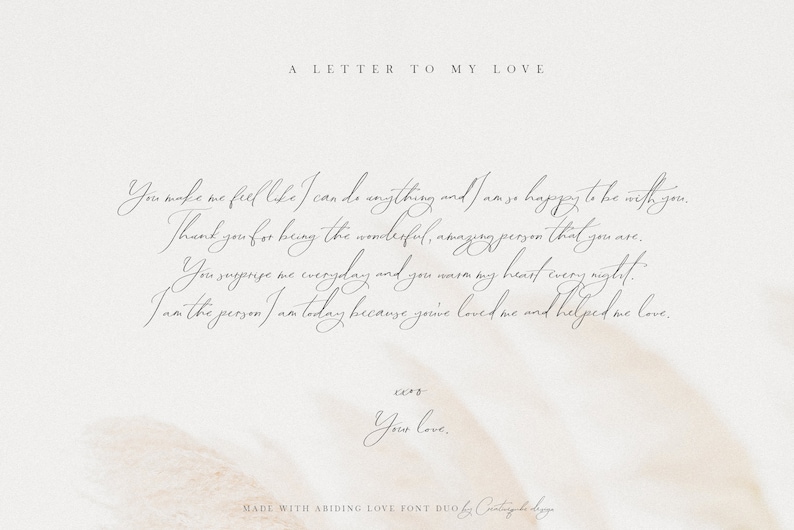 A LETTER TO MY LOVE
You make me feel like I can do anything and I am so happy to be with you.
Thank you for being the wonderful, amazing person that you are.
You surprise me everyday and you warm my heart every night.
I am the person I am today because you've loved me and helped me love.
xxoo
Your love.
MADE WITH ABIDING LOVE FONT DUO by design